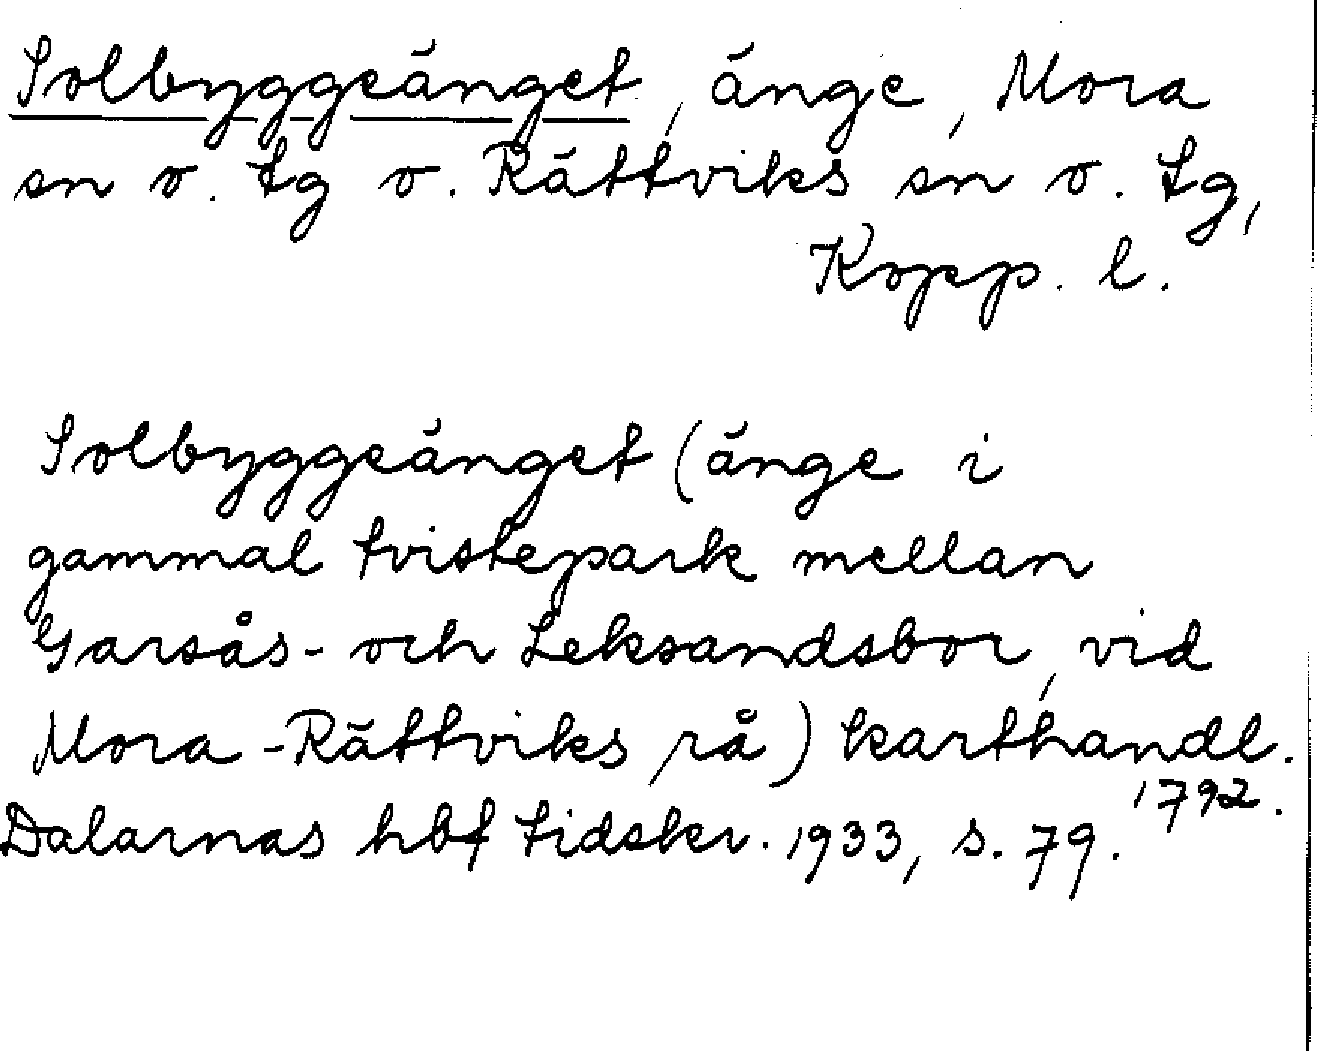 Solbyggeänget, änge, Mora
sn o. tg o. Rättviks sn o. tg,
Kopp. l.
Solbyggeänget (änge i
gammal tvistepark mellan
Garsås- och Leksandsbor, vid
Mora-Rättviks rå) karthandl.
1792.
Dalarnas hbf tidskr. 1933, s. 79.